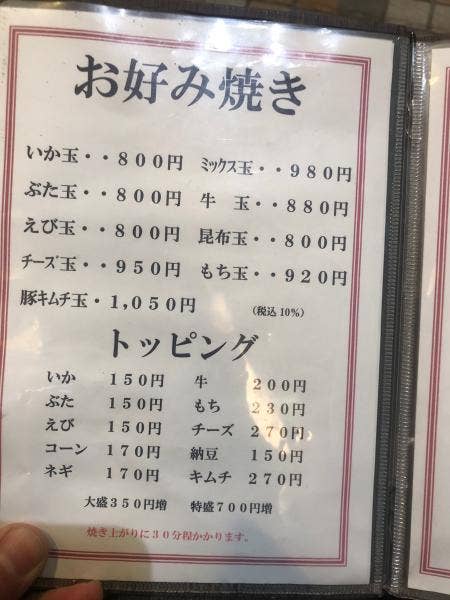 お好み焼き
いか玉・・800円 ミックス玉・・980円
ぶた玉・・800円 牛 玉・・880円
えび玉・・800円 昆布玉・・800円
チーズ玉・・950円 もち玉・・920円
豚キムチ玉・1,050円 (税込10%)
トッピング
いか 150円 牛 200円
ぶた 150円 もち 230円
えび 150円 チーズ 270円
コーン 170円 納豆 150円
ネギ 170円 キムチ 270円
大盛350円増 特盛700円増
焼き上がりに30分程かかります。